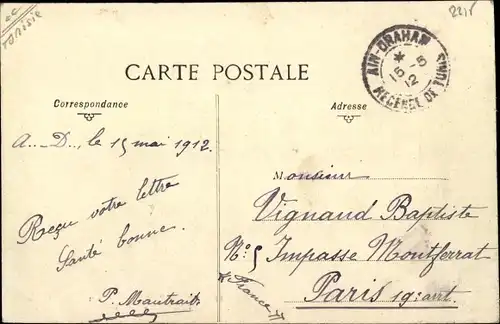 TUNISIE
2218
AIN-DRAHAM
15-5
12
REGENCE DE TUNIS
CARTE POSTALE
Correspondance
Adresse
A..-D.., le 15 mai 1912.
Reçu votre lettre
Santé bonne.
P. Mautraits
Monsieur
Vignaud Baptiste
N°: 5 Impasse Montferrat
Paris
(France)